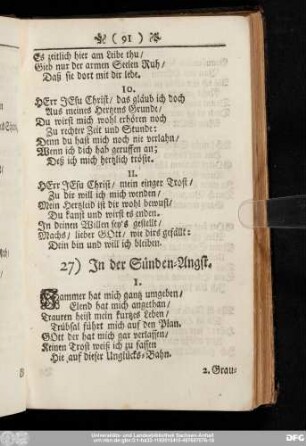 ( 91 )
Es zeitlich hier am Leibe thu/
Gieb nur der armen Seelen Ruh/
Daß sie dort mit dir lebe.
10.
HErr JEsu Christ/ das gläub ich doch
Aus meines Hertzens Grunde/
Du wirst mich wohl erhören noch
Zu rechter Zeit und Stunde:
Denn du hast mich noch nie verlahn/
Wenn ich dich hab geruffen an;
Deß ich mich hertzlich tröste.
11.
HErr JEsu Christ/ mein einger Trost/
Zu dir will ich mich wenden/
Mein Hertzleid ist dir wohl bewust/
Du kanst und wirst es enden.
In deinen Willen sey's gestellt/
Machs/ lieber GOtt/ wie dirs gefällt:
Dein bin und will ich bleiben.
27) In der Sünden-Angst.
1.
Jammer hat mich gantz umgeben/
Elend hat mich angethan/
Trauren heist mein kurtzes Leben/
Trübsal führt mich auf den Plan.
GOtt der hat mich gar verlassen/
Keinen Trost weiß ich zu fassen
Hie auf dieser Unglücks-Bahn.
2. Grau-